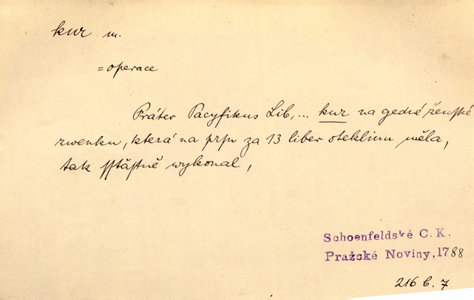 kur m.
= operace
Práter Pacyfikus Lib, ... kur na gedné ženské
zwenku, která na prsu za 13 liber oteklinu měla,
tak sstastně wykonal,
Schoenfeldské C. K.
Pražské Noviny, 1788
216 b. 7